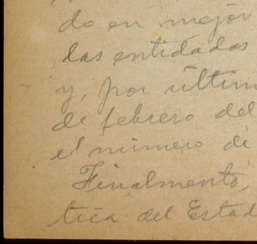 do en mejor
las entidades
y, por últim
de febrero del
el número de
Finalmente,
tica del Estad